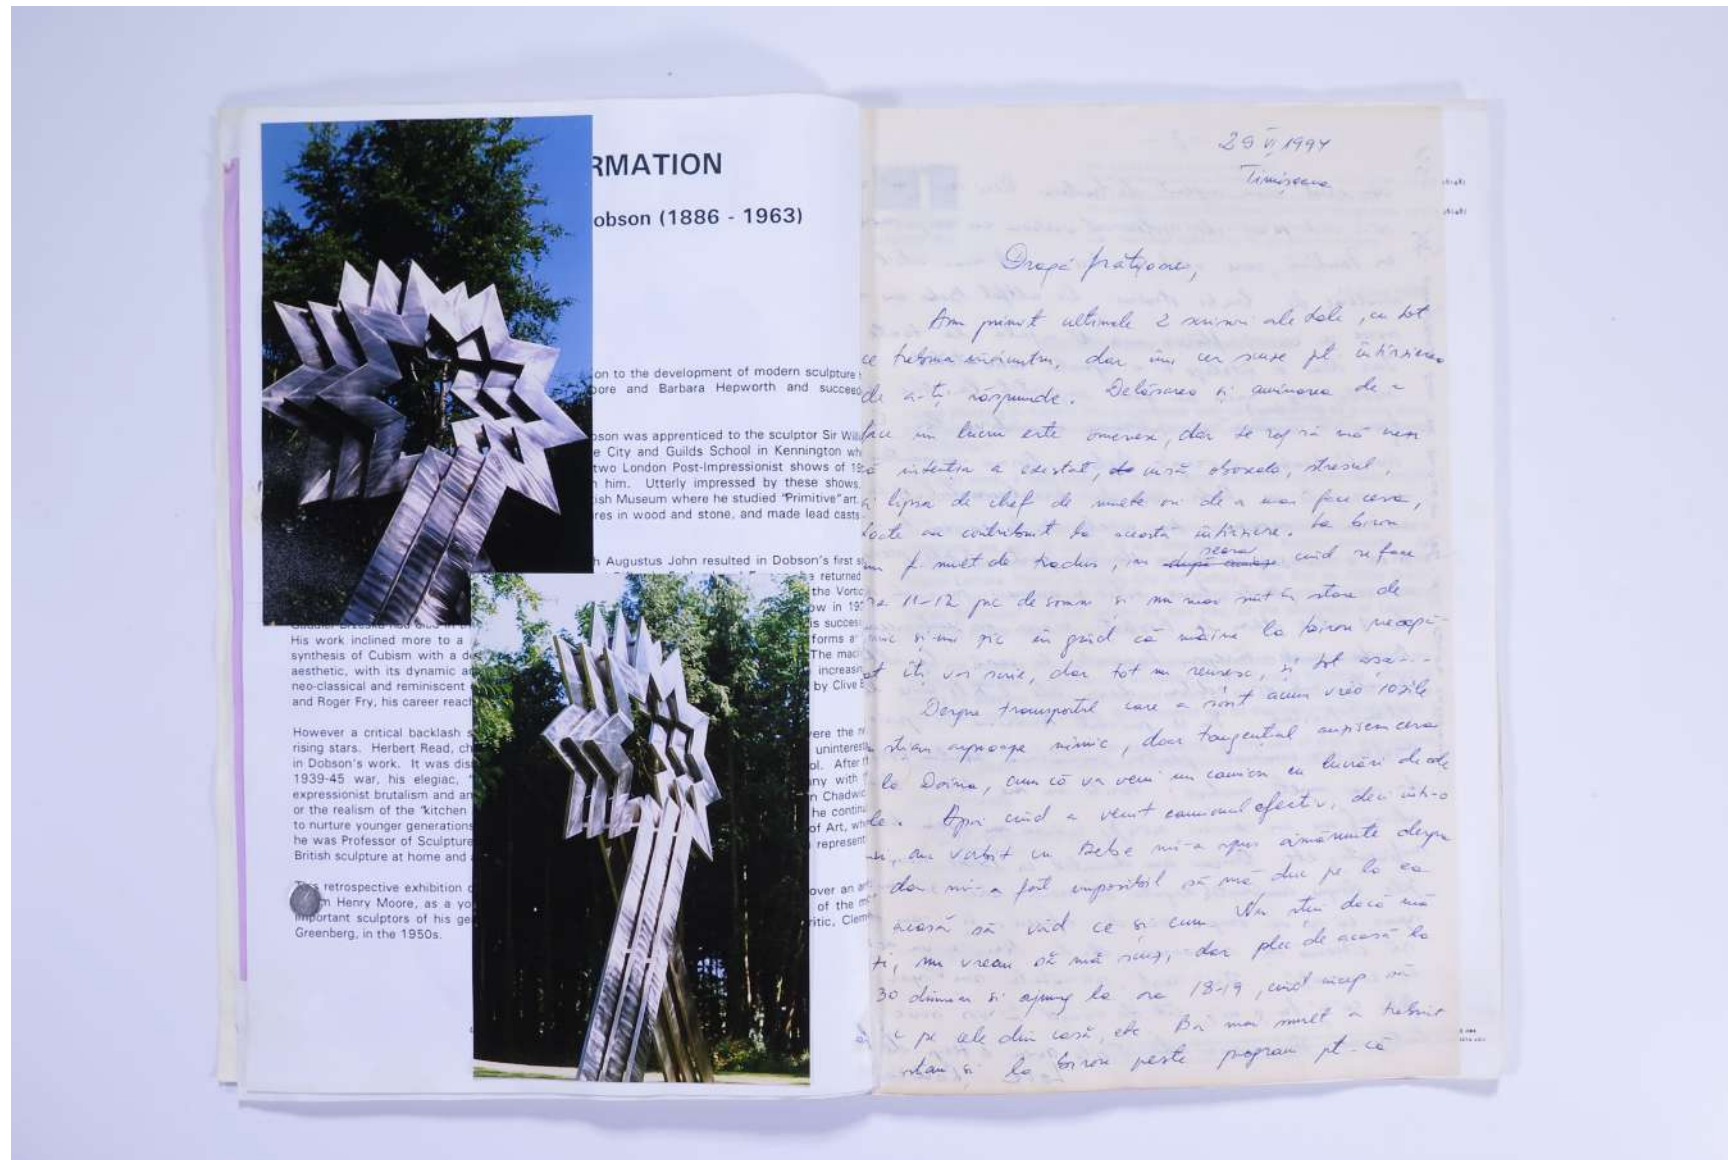 RMATION
obson (1886 - 1963)
on to the development of modern sculpture
oore and Barbara Hepworth and succeed
bson was apprenticed to the sculptor Sir Will
e City and Guilds School in Kennington wh
two London Post-Impressionist shows of 19
h him. Utterly impressed by these shows,
ish Museum where he studied "Primitive" art.
res in wood and stone, and made lead casts
h Augustus John resulted in Dobson's first s
e returned
the Vortic
ow in 19
is succes
His work inclined more to a
forms a
synthesis of Cubism with a de
The mac
aesthetic, with its dynamic a
increasin
neo-classical and reminiscent
by Clive B
and Roger Fry, his career reach
However a critical backlash s
ere the n
rising stars. Herbert Read, ch
uninteres
in Dobson's work. It was dis
ol. After
1939-45 war, his elegiac, "
ny with
expressionist brutalism and an
n Chadwic
or the realism of the "kitchen
he continu
to nurture younger generations
of Art, wh
he was Professor of Sculpture
represent
British sculpture at home and
retrospective exhibition o
over an a
m Henry Moore, as a yo
of the m
important sculptors of his ge
ritic, Clem
Greenberg, in the 1950s.
29 VI 1994
Timișoara
Dragă frățioare,
Am primit ultimele 2 scrisori ale tale, cu tot
ce trebuia înăuntru, dar îmi cer scuze pt întîrzierea
de a-ți răspunde. Delăsarea și amînarea de a
face un lucru este omenesc, dar te rog să mă
că intenția a existat, însă oboseala, stresul,
și lipsa de chef de multe ori de a mai face ceva,
toate au contribuit la această întîrziere. La birou
am f. mult de tradus, iar seara cînd se face
ora 11-12 pic de somn și nu mai sînt în stare de
nimic și-mi zic în gînd că mâine la birou neapă-
rat îți voi scrie, dar tot nu reușesc, și tot așa...
Despre transportul care a sosit acum vreo 10 zile
nu știam aproape nimic, doar tangențial auzisem ceva
la Doina, cum că va veni un camion cu lucrări de ale
tale. Apoi cînd a venit camionul efectiv, deci într-o
am vorbit cu Bebe mi-a spus amănunte despre
dar mi-a fost imposibil să mă duc pe la ea
acasă să văd ce și cum. Nu știu dacă mă
nu vreau să mă scuz, dar plec de acasă la
30 dimin și ajung la ora 18-19, cînd încep să
pe cele din casă, etc. Ba mai mult a trebuit
stau și la birou peste program pt. că